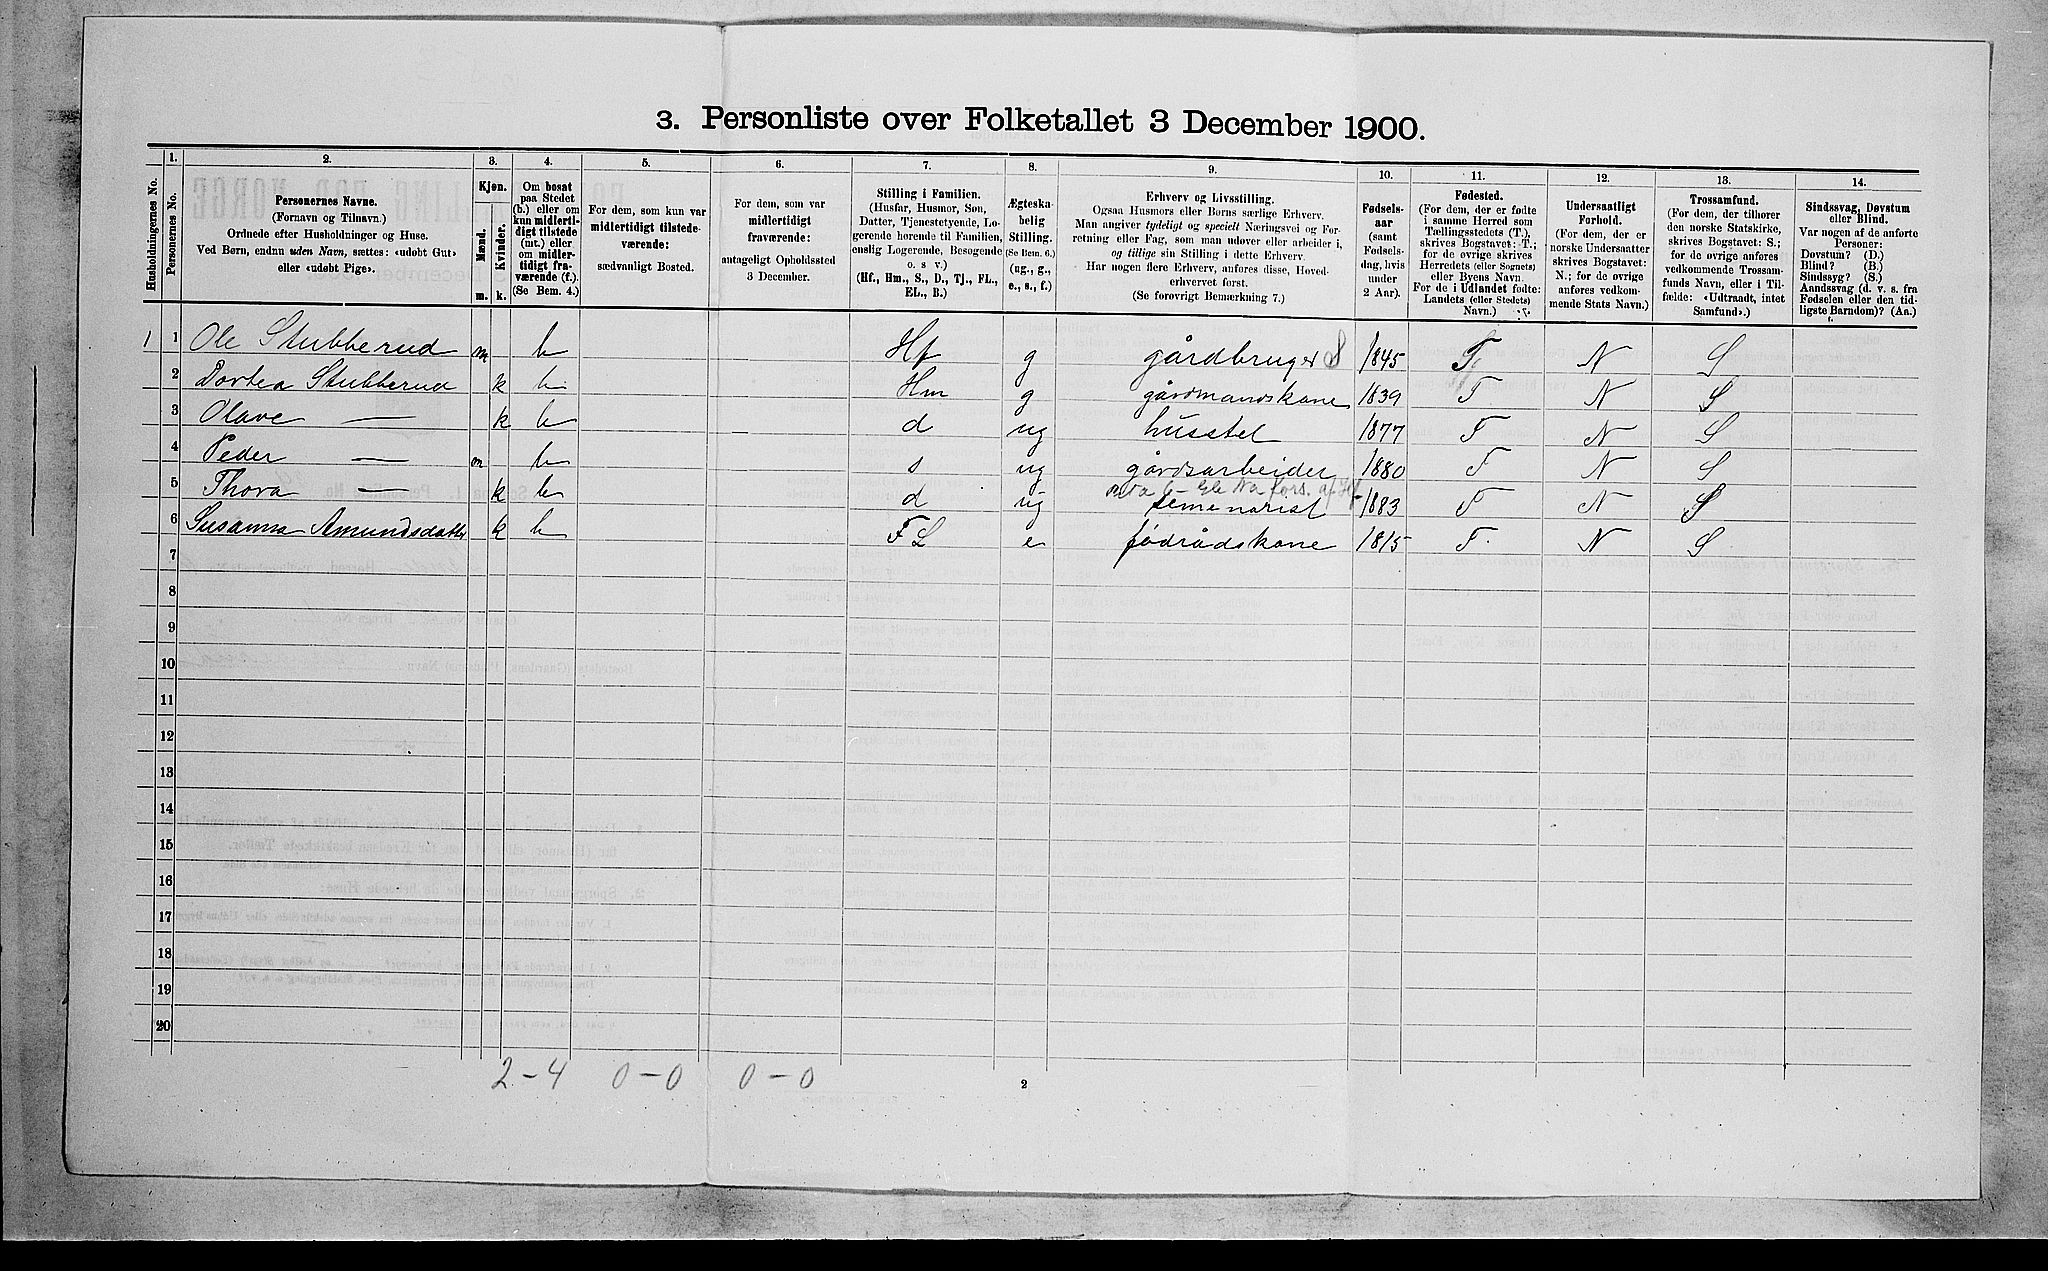 3. Personliste over Folketallet 3 December 1900.
1. 2. 3. 4. 5. 6. 7. 8. 9. 10. 11. 12. 13. 14.
Husholdningernes No.
Personernes No.
Personernes Navne.
(Fornavn og Tilnavn.)
Ordnede efter Husholdninger og Huse.
Ved Børn, endnu uden Navn, sættes: «udøbt Gut»
eller «udøbt Pige».
Kjøn.
Mænd.
Kvinder.
m. k.
Om bosat
paa Stedet
(b.) eller om
kun midlerti-
digt tilstede
(mt.) eller
om midler-
tidigt fra-
værende (f.)
(Se Bem. 4.)
For dem, som kun var
midlertidigt tilstede-
værende:
sædvanligt Bosted.
For dem, som var
midlertidigt
fraværende:
antageligt Opholdssted
3 December.
Stilling i Familien.
(Husfar, Husmor, Søn,
Datter, Tjenestetyende, Lo-
gerende hørende til Familien,
enslig Logerende, Besøgende
o. s v.)
(Hf., Hm., S., D., Tj., FL.,
EL., B.)
Ægteska-
belig
Stilling.
(Se Bem. 6.)
(ug., g.,
e., s., f.)
Erhverv og Livsstilling.
Ogsaa Husmors eller Børns særlige Erhverv.
Man angiver tydeligt og specielt Næringsvei og For-
retning eller Fag, som man udøver eller arbeider i,
og tillige sin Stilling i dette Erhverv.
Har nogen flere Erhverv, anføres disse, Hoved-
erhvervet først.
(Se forøvrigt Bemerkning 7.)
Fødsels-
aar
(samt
Fødsels-
dag, hvis
under
2 Aar).
Fødested.
(For dem, der er fødte
i samme Herred som
Tællingsstedets (T.),
skrives Bogstavet: T.;
for de øvrige skrives
Herredets (eller Sognets)
eller Byens Navn.
For de i Udlandet fødte:
Landets (eller Stedets)
Navn.)
Undersaatligt
Forhold.
(For dem, der er
norske Undersaatter
skrives Bogstavet:
N.; for de øvrige
anføres vedkom-
mende Stats Navn.)
Trossamfund.
(For dem, der tilhører
den norske Statskirke,
skrives Bogstavet: S.;
for de øvrige anføres
vedkommende Trossam-
funds Navn, eller i Til-
fælde: «Udtraadt, intet
Samfund».)
Sindssvag, Døvstum
eller Blind.
Var nogen af de anførte
Personer:
Døvstum? (D.)
Blind? (B.)
Sindssyg? (S.)
Aandssvag (d. v. s. fra
Fødselen eller den tid-
ligste Barndom)? (Aa.)
1 1 Ole Stubberud m b Hf g gårdbruger S 1845 T N S
2 Dortea Stubberud k b Hm g gårdmandskone 1839 T N S
3 Olave — k b d ug husstel 1877 T N S
4 Peder — m b s ug gårdsarbeider 1880 T N S
5 Thora — k b d ug semenarist 1883 T N S
6 Susanna Amundsdatter k b FL e födrådskone 1815 T. N S
7
8
9
10
11
12
13
14
15
16
17
18
19
20
2 – 4 0 – 0 0 – 0
2